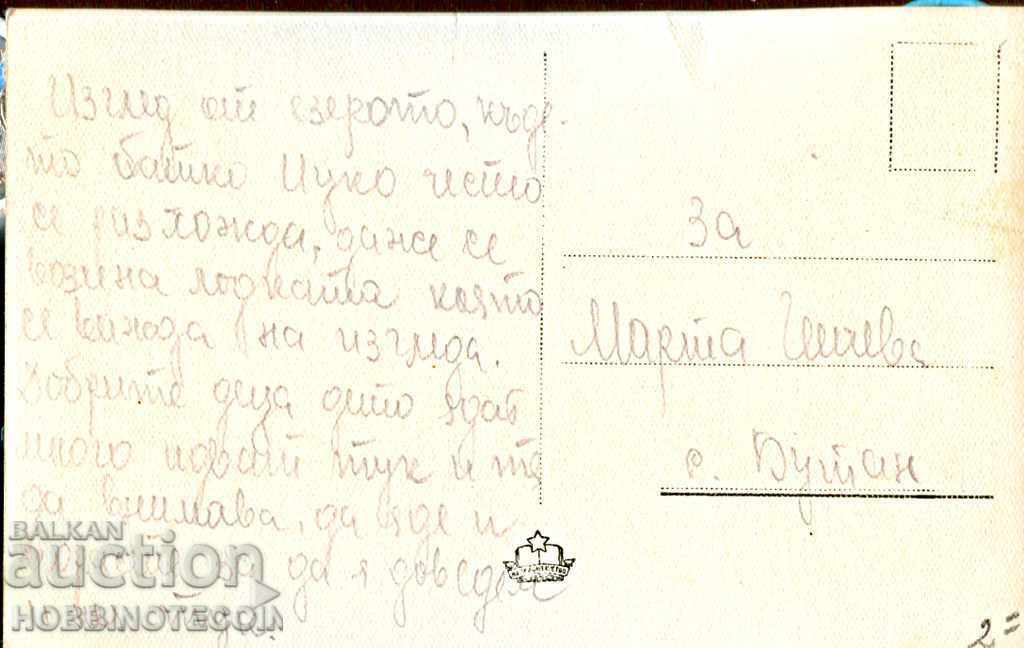 Изглед от езерото, къде-
то батко Цуко често
се разхожда, даже се
вози на лодката която
се вижда на изгледа.
Добрите деца дето ядат
много идват тук и тя
да внимава, да яде и
да я доведем
За
Марта
с. Бутан
BALKAN
auction
HOBBINOTECOIN
2=